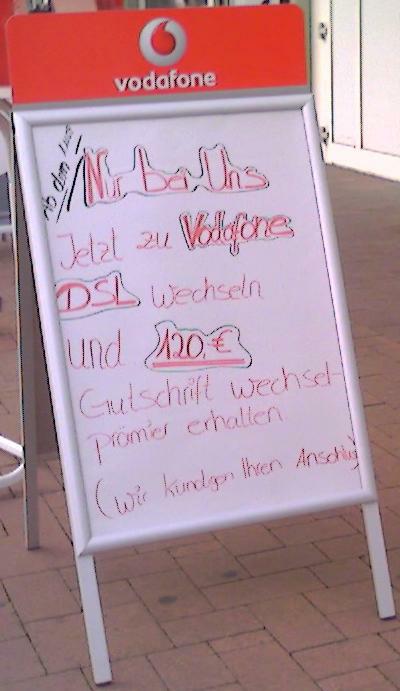 vodafone
Ab dem
Nur bei Uns
Jetzt zu Vodafone
DSL wechseln
und 120,€
Gutschrift wechsel-
prämier erhalten
(wir kündigen Ihren Anschluß)